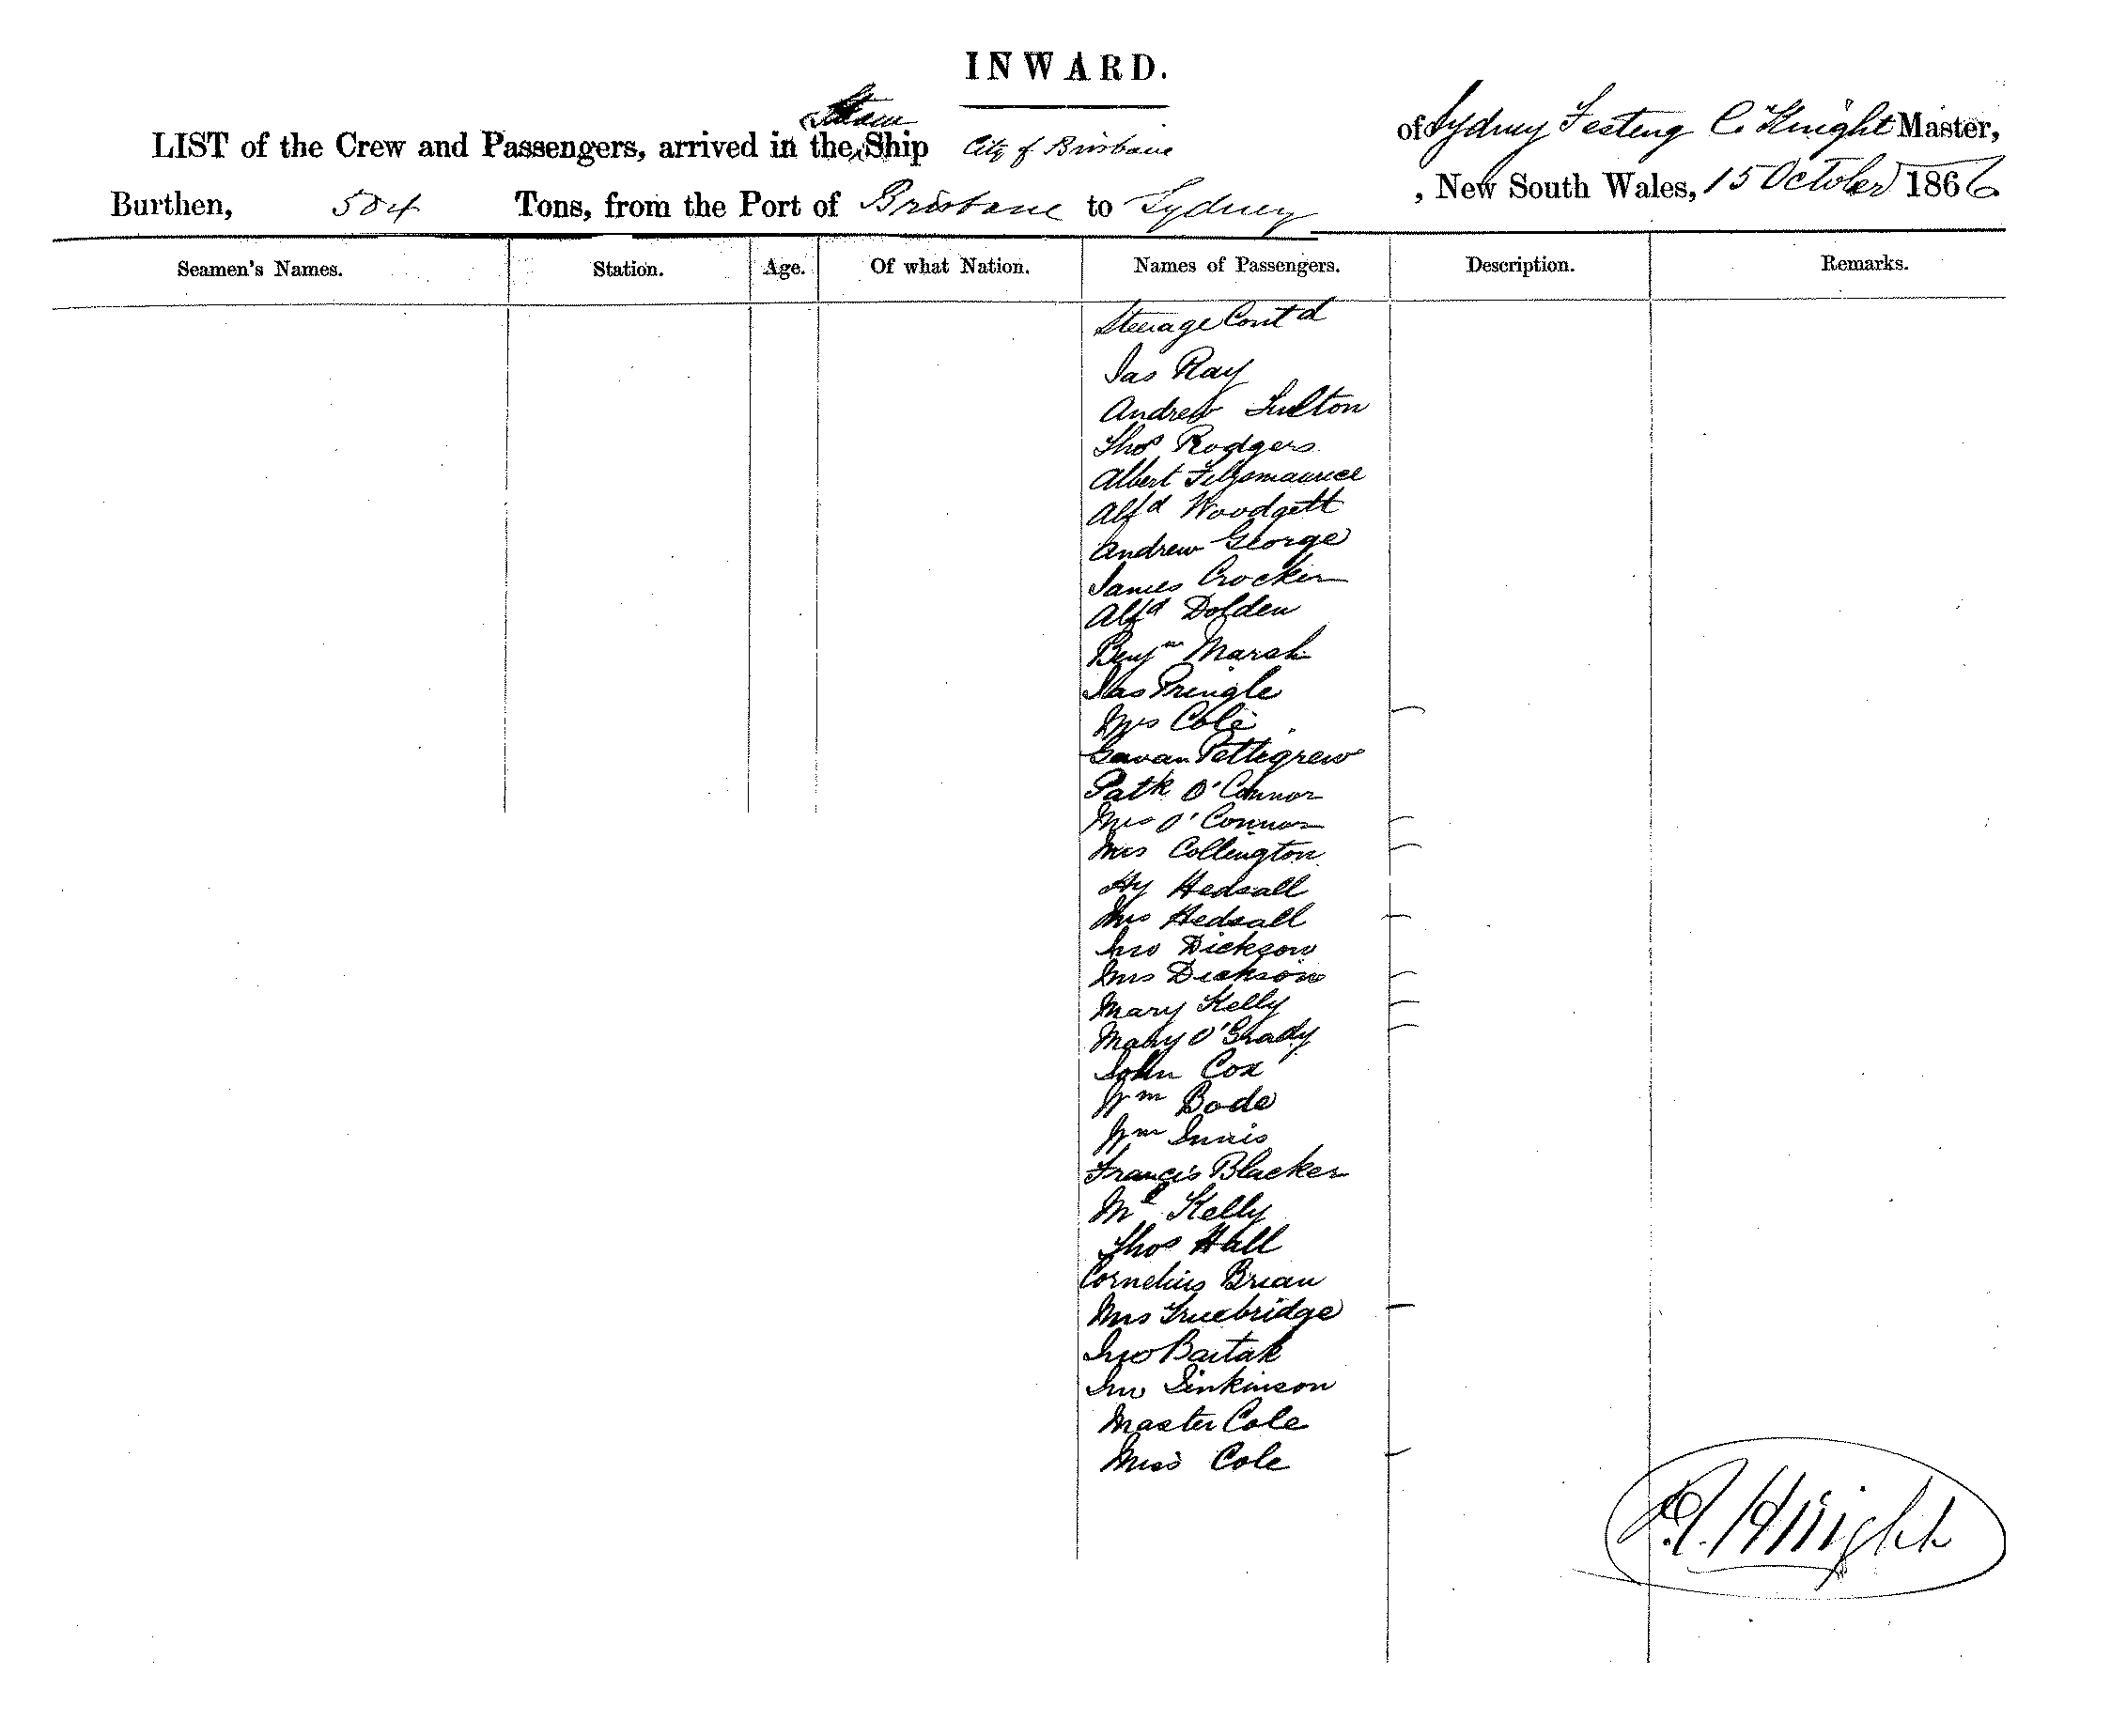 INWARD.
LIST of the Crew and Passengers, arrived in the Steam Ship City of Brisbane of Sydney Festing C. Knight Master,
Burthen, 504 Tons, from the Port of Brisbane to Sydney, New South Wales, 15 October 1866
Seamen's Names. Station. Age. Of what Nation. Names of Passengers. Description. Remarks.
Steerage Cont'd
Jas Ray
Andrew Fulton
Thos Rodgers
Albert Fitzsmaurice
Alfd Woodgett
Andrew George
James Crocker
Alfd Dolden
Benjm Marsh
Jas Pringle
Mrs Cole
Gavan Pettigrew
Patk O'Connor
Mrs O'Connor
Mrs Collington
Hy Hedsall
Mrs Hedsall
Jno Dickson
Mrs Dickson
Mary Kelly
Mary O'Grady
John Cox
Wm Bode
Wm Innis
Francis Blacker
Ml Kelly
Thos Hall
Cornelius Brian
Mrs Truebridge
Jno Bartak
Jno Jinkinson
Master Cole
Miss Cole
Knight